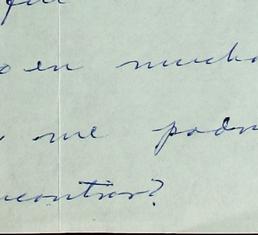 en mucho
me podr
ncontrar?